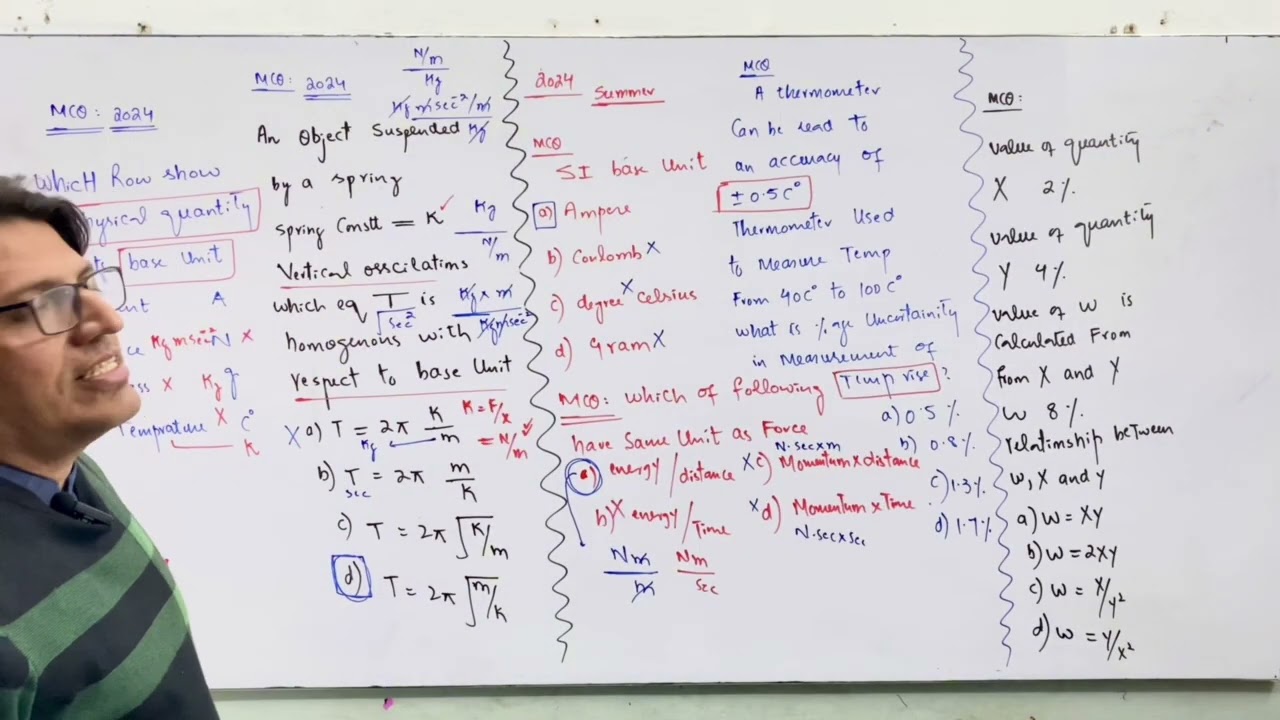 MCQ: 2024
WhicH Row show
physical quantity
base Unit
A
Kg msec⁻² N X
X Kg g
Temprature X C°
K
MCQ: 2024
N/m
Kg
Kg msec⁻²/m
Kg
An Object Suspended
by a spring
spring Constt = K ✓ Kg
N/m
Vertical osscilatims
which eq T is Kg x m
sec² Kg msec⁻²
homogenous with
respect to base Unit
X a) T = 2π K/m K = F/x
Kg = N/m ✓
b) T = 2π m/K
sec
c) T = 2π √K/m
d) T = 2π √m/K
2024 Summer
MCQ
SI base Unit
a) Ampere
b) Coulomb X
c) degree X Celsius
d) Gram X
MCQ: which of following
have Same Unit as Force
a) energy/distance
b) X energy/Time
N·sec x m
X c) Momentum x distance
X d) Momentum x Time
N·sec x sec
Nm Nm
m sec
MCQ
A thermometer
Can be read to
an accuracy of
± 0.5 C°
Thermometer Used
to Measure Temp
From 40C° to 100C°
what is %age Uncertainity
in Measurement of
Temp rise ?
a) 0.5 %
b) 0.8 %
c) 1.3 %
d) 1.7 %
MCQ:
value of quantity
X 2%
value of quantity
Y 4%
value of w is
Calculated From
From X and Y
w 8%
relatimship between
w, X and Y
a) w = XY
b) w = 2XY
c) w = X/y²
d) w = Y/x²